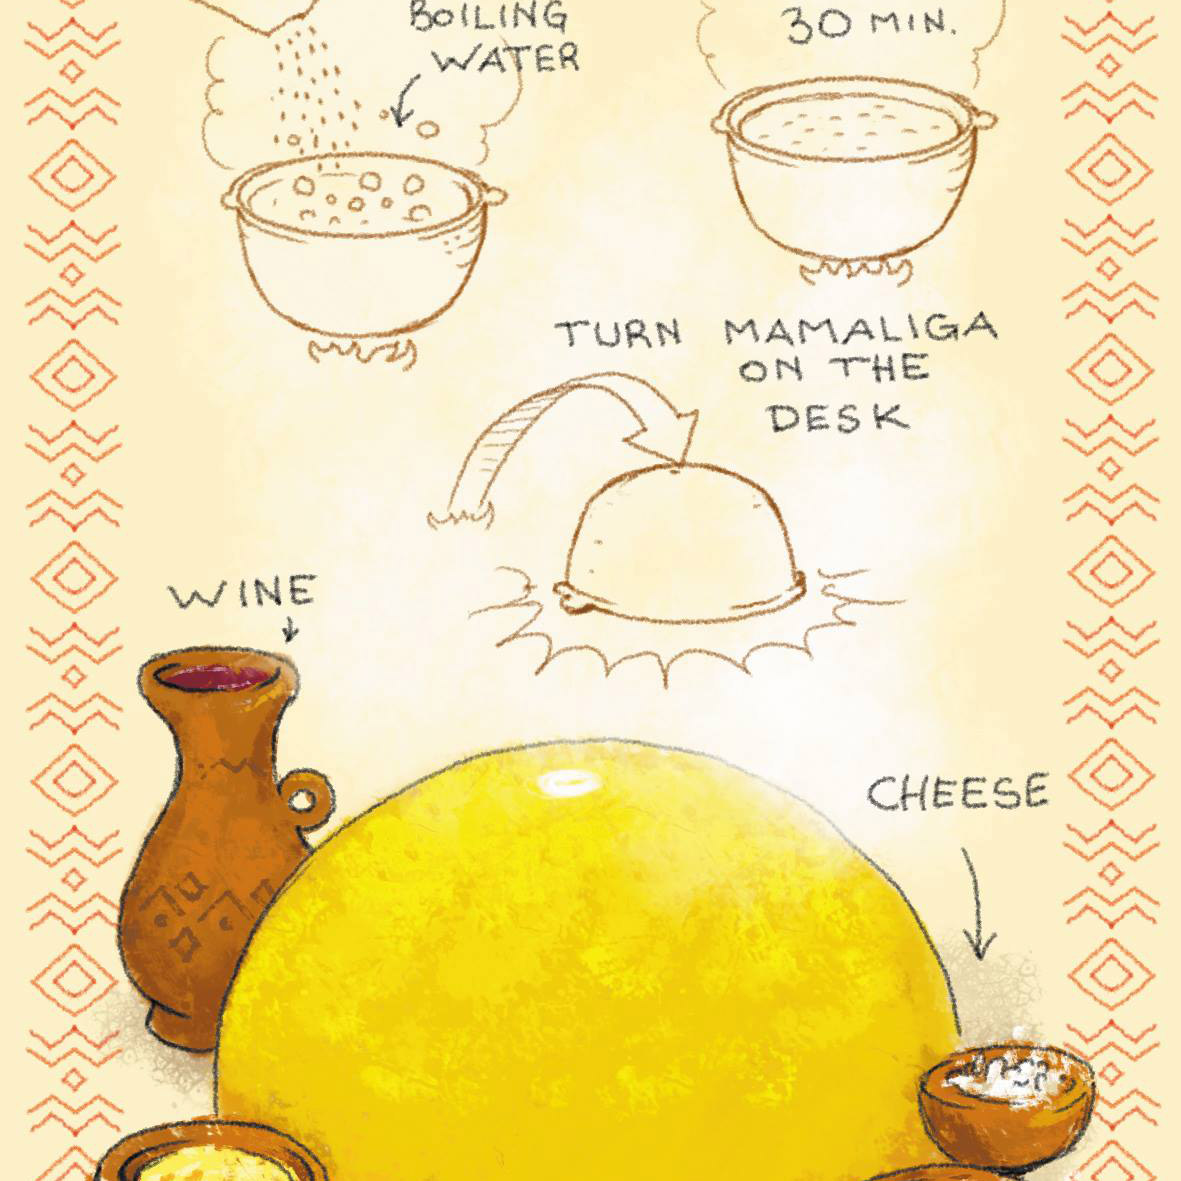 BOILING
WATER
30 MIN.
TURN MAMALIGA
ON THE
DESK
WINE
CHEESE